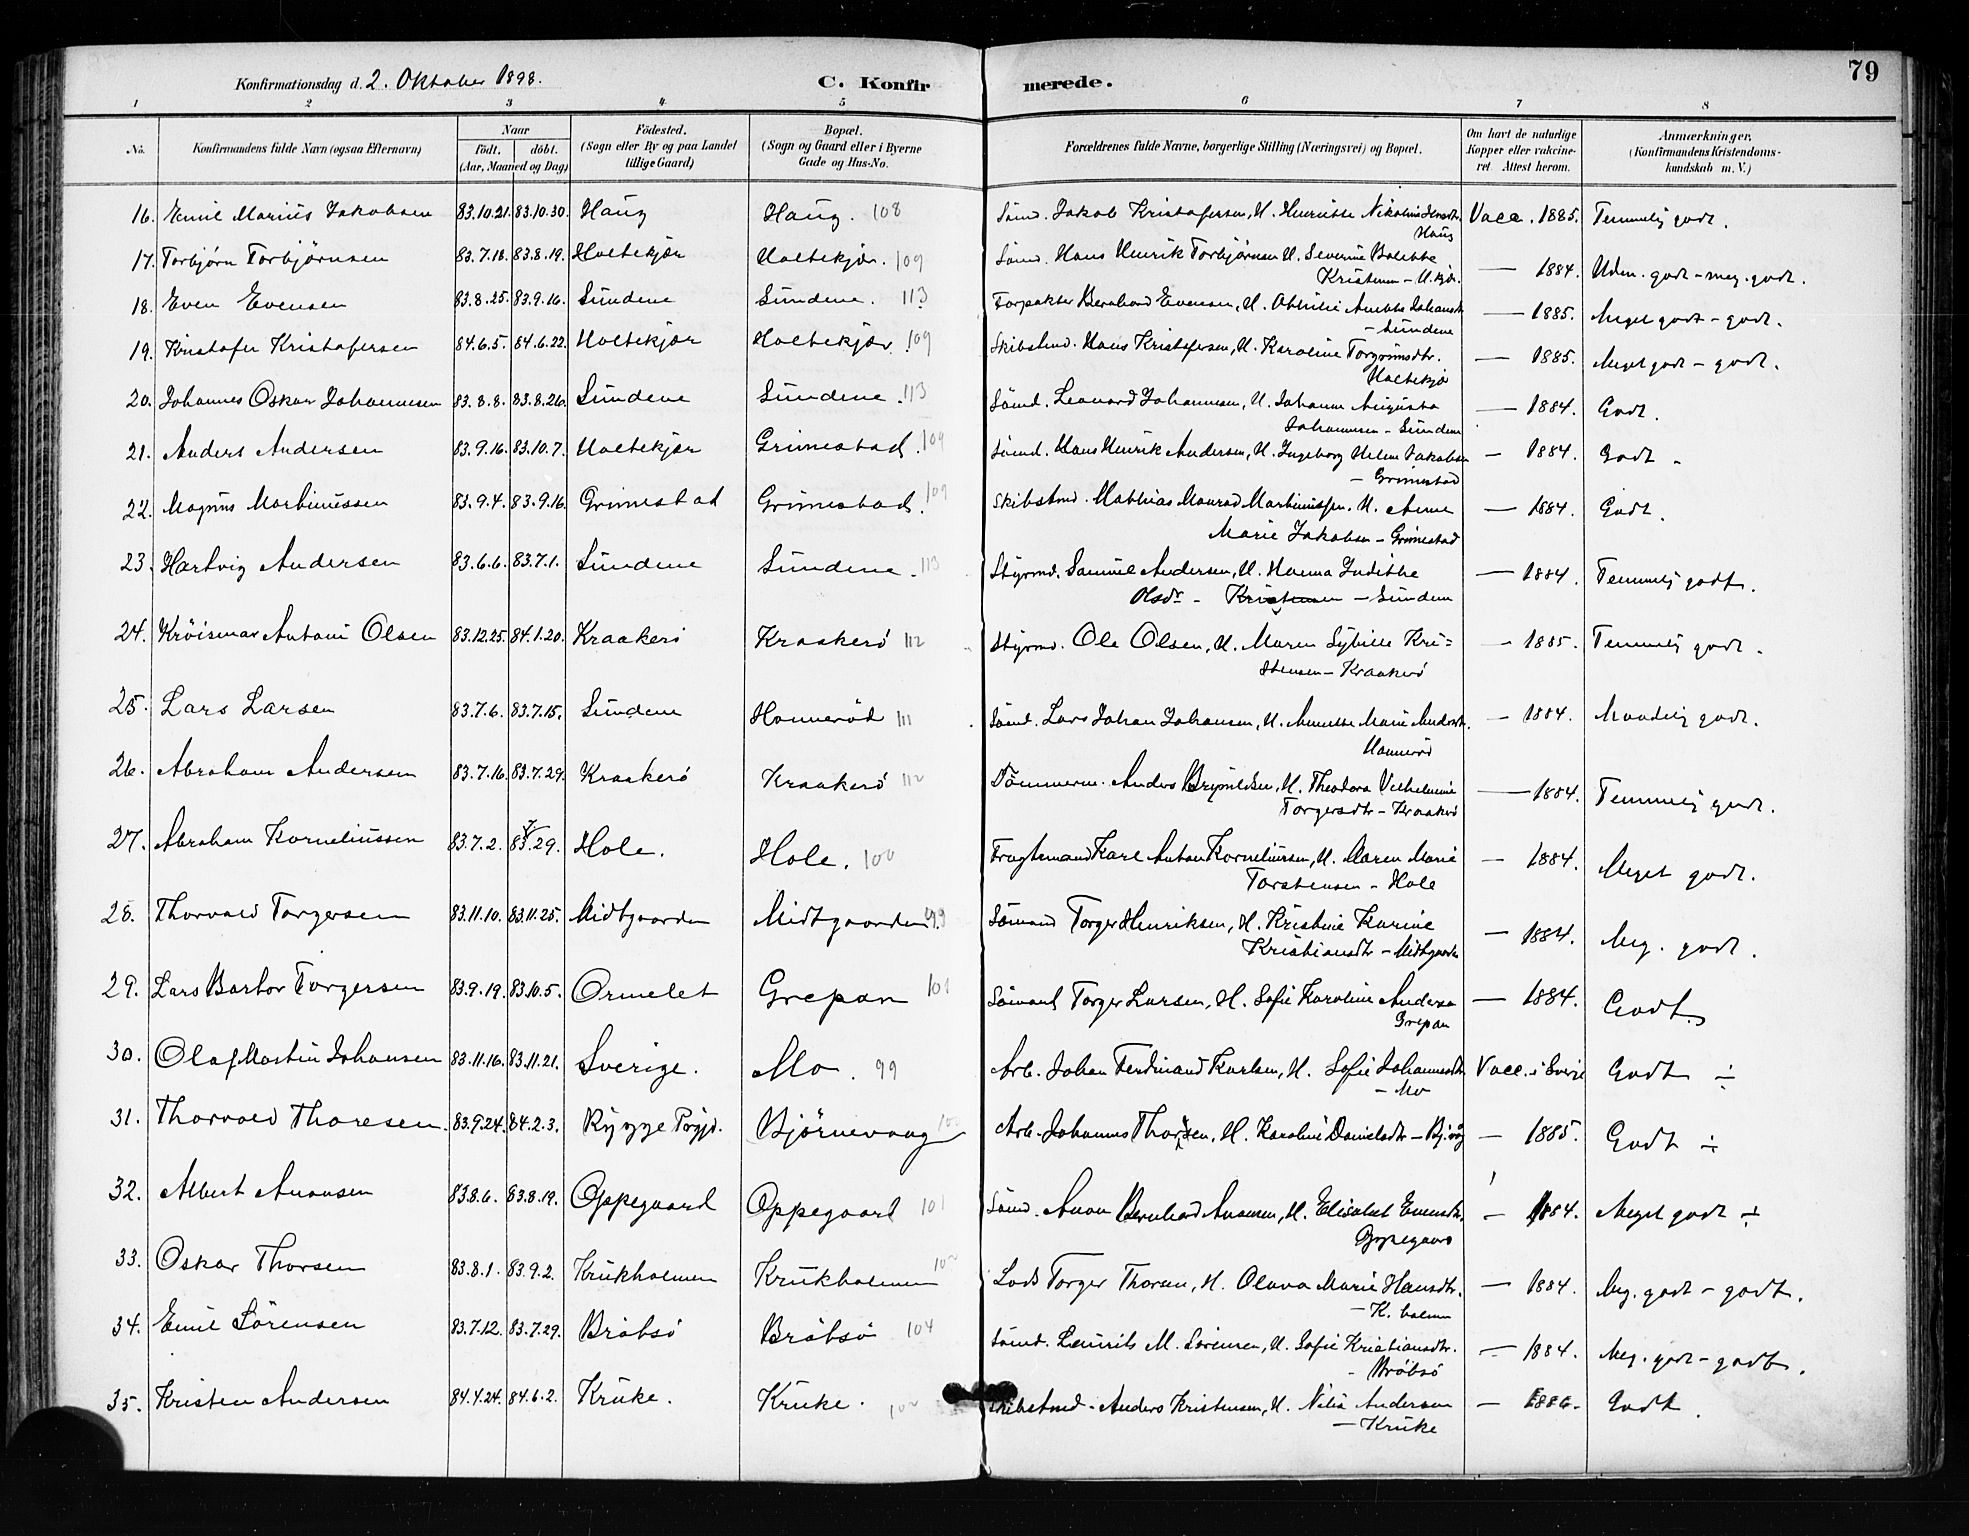 79
Konfirmationsdag d. 2. Oktober 1898.
C. Konfirmerede.
1 2 3 4 5 6 7 8
No. Konfirmandens fulde Navn (ogsaa Efternavn) Naar født. døbt. (Aar, Maaned og Dag) Fødested. (Sogn eller By og paa Landet tillige Gaard) Bopæl. (Sogn og Gaard eller i Byerne Gade og Hus-No. Forældrenes fulde Navne, borgerlige Stilling (Næringsvei) og Bopæl. Om havt de naturlige Kopper eller vakcineret. Attest herom. Anmærkninger. (Konfirmandens Kristendomskundskab m. V.)
16. Emil Marius Jakobsen 83.10.21. 83.10.30. Haug Haug. 108 Sømd. Jakob Kristofersen, H. Henriette Nikoline Vacc. 1885. Temmelig godt.
Haug
17. Torbjørn Torbjørnsen 83.7.18. 83.8.19. Holtekjær Holtekjær. 109 Sømd. Hans Henrik Torbjørnsen H. Severine
Kristensen — H.kjær. — 1884. Uden. godt – meg. godt.
18. Even Evensen 83.8.25. 83.9.16. Sundene Sundene. 113 Forpakter Bernhard Evensen, H. Othilie Anette Johansdtr. — 1885. Meget godt – godt.
– Sundene
19. Kristofer Kristofersen 84.6.5. 84.6.22. Holtekjær Holtekjær. 109 Skibstmd. Hans Kristofersen, H. Karoline Torgrimsdtr. — 1885. Meget godt – godt.
Holtekjær
20. Johannes Oskar Johannesen 83.8.8. 83.8.26. Sundene Sundene. 113 Sømd. Leonard Johannesen, H. Johanne Augusta — 1884. Godt.
Johannesen – Sundene
21. Anders Andersen 83.9.16. 83.10.7. Holtekjær Grimestad. 109 Sømd. Hans Henrik Andersen, H. Ingeborg Helene Jakobsen — 1884. Godt –
– Grimestad
22. Magnus Martinussen 83.9.4. 83.9.16. Grimestad Grimestad. 109 Skibstmd. Mathias Monrad Martinussen. H. Anne — 1884. Godt.
Marie Jakobsen – Grimestad
23. Hartvig Andersen 83.6.6. 83.7.1. Sundene Sundene. 113 Styrmd. Samuel Andersen, H. Hanna Judithe — 1884. Temmelig godt.
Olsdr – Kristensen – Sundene
24. Krøismar Antoni Olsen 83.12.25. 84.1.20. Kraakerø Kraakerø 112 Styrmd. Ole Olsen, H. Maren Sybille Kri= — 1885. Temmelig godt.
stensen – Kraakerø
25. Lars Larsen 83.7.6. 83.7.15. Sundene Honnerød 111 Sømd. Lars Johan Johansen, H. Annette Marie Andersdtr. — 1884. Maadelig godt.
Honnerød
26. Abraham Andersen 83.7.16. 83.7.29. Kraakerø Kraakerø 112 Tømmerm. Anders Brynildsen, H. Theodora Vilhelmine — 1884. Temmelig godt.
Torgersdtr – Kraakerø
27. Abraham Korneliussen 83.7.2. 83.7.29. Hole. Hole. 100 Fragtemand Karl Anton Korneliussen, H. Maren Marie — 1884. Meget godt.
Torstensen – Hole
28. Thorvald Torgersen 83.11.10. 83.11.25. Midtgaarden Midtgaarden. 99 Sømand Torger Henriksen, H. Kristine Karine — 1884. Meg. godt.
Kristiansdtr – Midtgaarden
29. Lars Barbor Torgersen 83.9.19. 83.10.5. Ormelet Grepan 101 Sømand Torger Larsen, H. Sofie Karoline Andersen — 1884. Godt.
Grepan
30. Olaf Martin Johansen 83.11.16. 83.11.21. Sverige. Mo. 99 Arb. Johan Ferdinand Karlsen, H. Sofie Johannesdtr Vacc. i Sverige Godt ÷
– Mo
31. Thorvald Thoresen. 83.9.24. 84.2.3. Rygge Prgjd. Bjørnevaag 100 Arb. Johannes Thorsen, H. Karoline Danielsdtr – Bj.våg — 1885. Godt ÷
32. Albert Anonsen 83.8.6. 83.8.19. Oppegaard Oppegaard 101 Sømd. Anon Bernhard Anonsen, H. Elisabet Evensdtr. — 1884. Meget godt ÷
Oppegaard
33. Oskar Thorsen 83.8.1. 83.9.2. Krukholmen Krukholmen 102 Lods Torger Thorsen, H. Olava Marie Hansdtr. — 1884. Meg. godt – godt.
– K. holmen
34. Emil Sørensen 83.7.12. 83.7.29. Brøbsø Brøbsø 104 Sømd. Laurits M. Sørensen, H. Sofie Kristiansdtr. — 1884. Meg. godt – godt.
– Brøbsø
35. Kristen Andersen 84.4.24. 84.6.2. Kruke. Kruke. 102 Skibstmd. Anders Kristensen, H. Nilia Andersen — 1886. Godt.
– Kruke